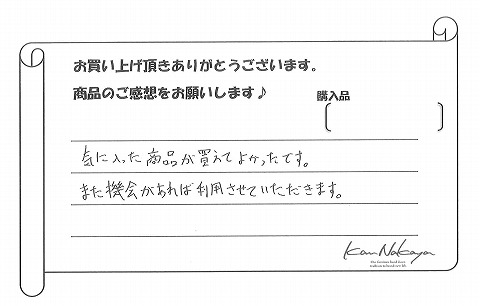 お買い上げ頂きありがとうございます。
商品のご感想をお願いします♪
購入品
気に入った商品が買えてよかったです。
また機会があれば利用させていただきます。
Kan Nakaya